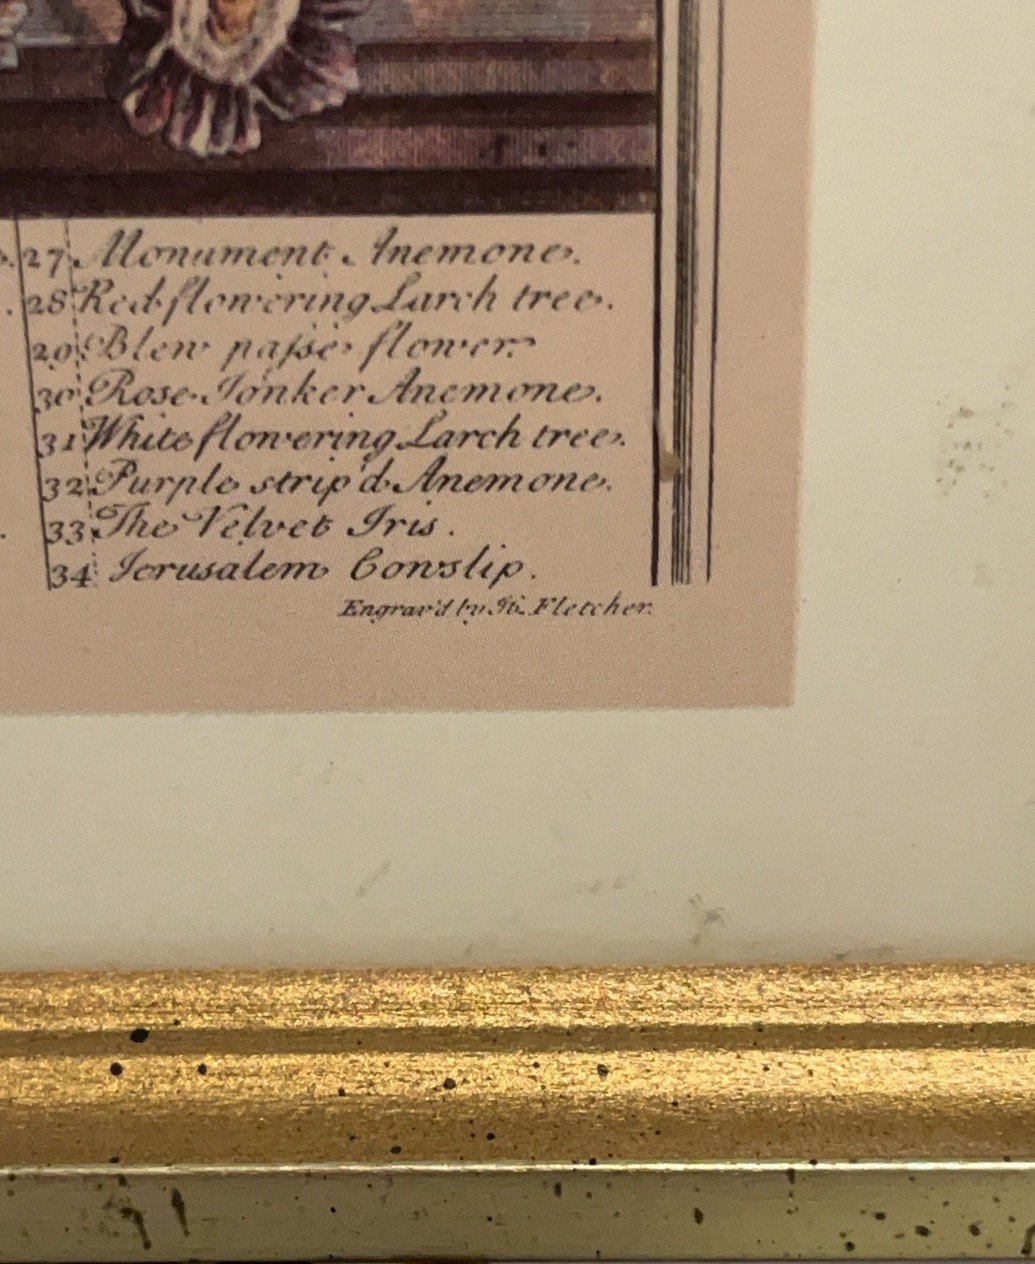 27 Monument Anemone.
28 Red flowering Larch tree.
29 Blew paſse flower.
30 Rose Jonker Anemone.
31 White flowering Larch tree.
32 Purple strip'd Anemone.
33 The Velvet Iris.
34 Jerusalem Cowslip.
Engrav'd by H. Fletcher.